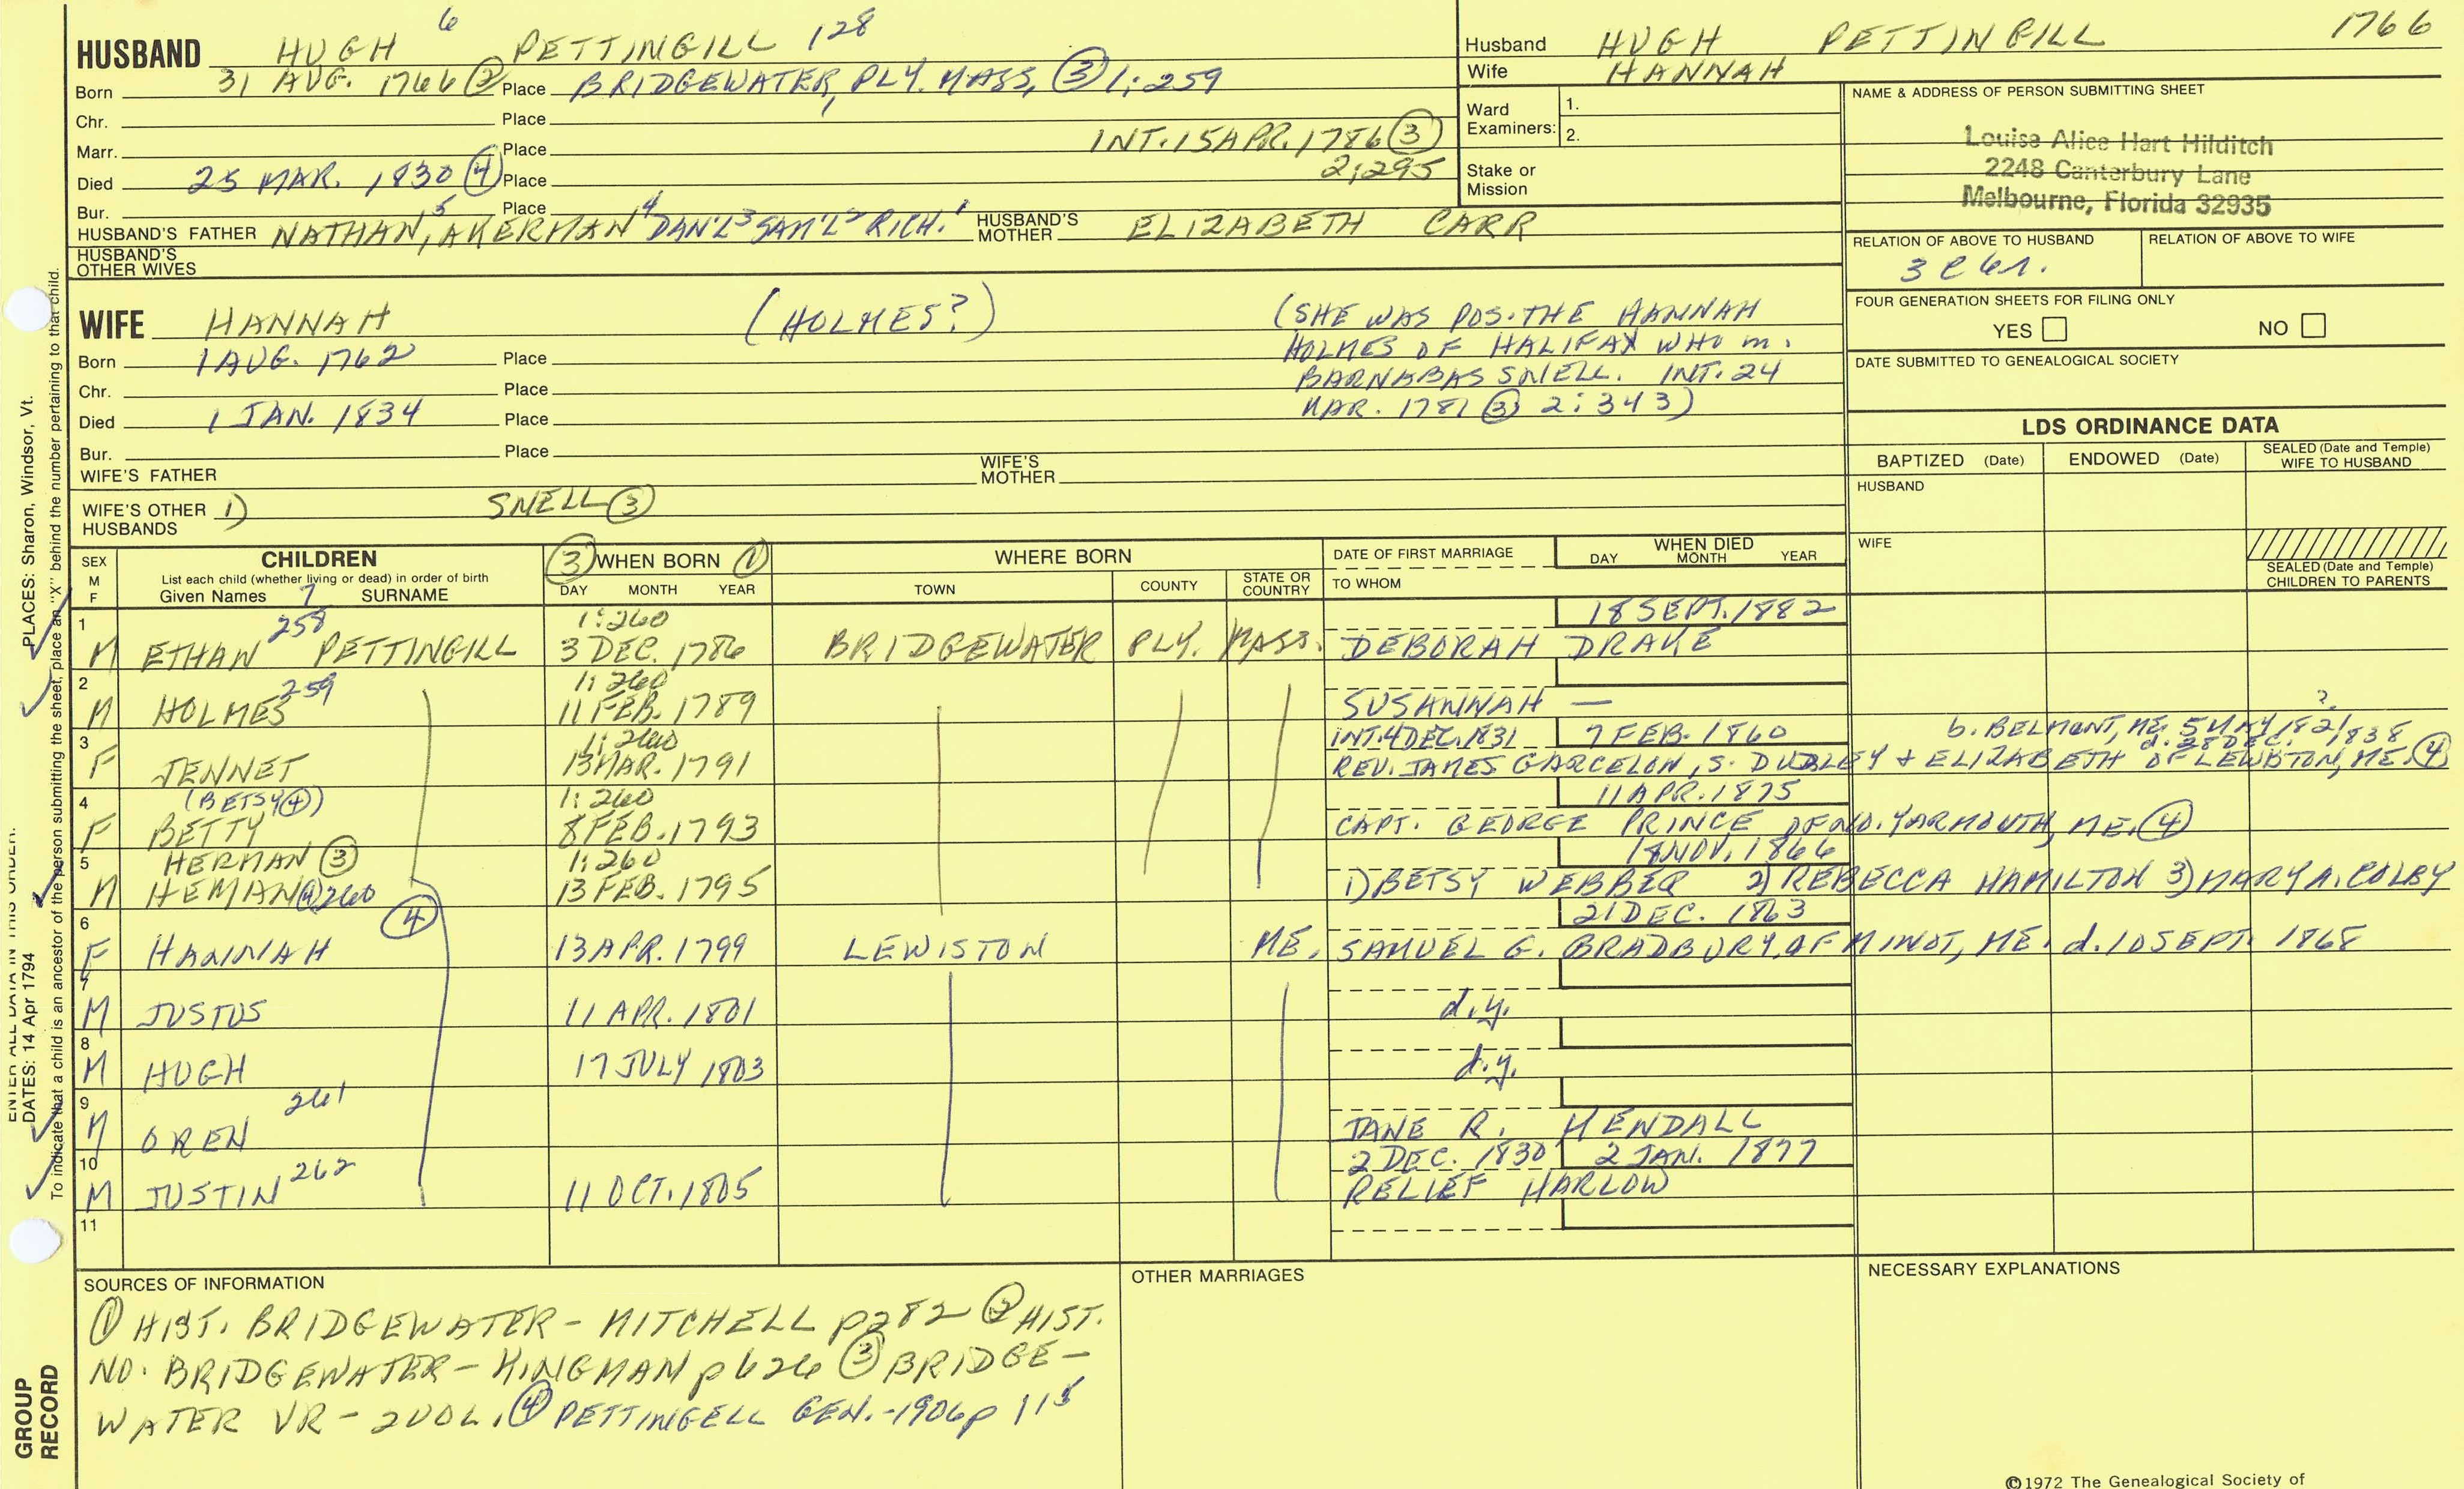 HUSBAND HUGH 6 PETTINGILL 128
Born 31 AUG. 1766 (2) Place BRIDGEWATER, PLY. MASS, (3) 1:259
Chr. Place
Marr. Place INT. 15 APR. 1786 (3)
2:295
Died 25 MAR. 1830 (4) Place
Bur. Place
HUSBAND'S FATHER NATHAN,5 AKERMAN4 DAN'L3 SAM'L2 RICH.1 HUSBAND'S MOTHER ELIZABETH CARR
HUSBAND'S OTHER WIVES
Husband HUGH PETTINGILL 1766
Wife HANNAH
Ward Examiners: 1.
2.
Stake or Mission
NAME & ADDRESS OF PERSON SUBMITTING SHEET
Louise Alice Hart Hilditch
2248 Canterbury Lane
Melbourne, Florida 32935
RELATION OF ABOVE TO HUSBAND RELATION OF ABOVE TO WIFE
3 C 6r.
FOUR GENERATION SHEETS FOR FILING ONLY
YES NO
DATE SUBMITTED TO GENEALOGICAL SOCIETY
WIFE HANNAH (HOLMES?) (SHE WAS POS. THE HANNAH
HOLMES OF HALIFAX WHO m.
BARNABAS SNELL. INT. 24
MAR. 1781 (3) 2:343)
Born 1 AUG. 1762 Place
Chr. Place
Died 1 JAN. 1834 Place
Bur. Place
WIFE'S FATHER WIFE'S MOTHER
WIFE'S OTHER HUSBANDS 1) SNELL (3)
LDS ORDINANCE DATA
BAPTIZED (Date) ENDOWED (Date) SEALED (Date and Temple) WIFE TO HUSBAND
HUSBAND
WIFE
SEALED (Date and Temple) CHILDREN TO PARENTS
SEX M F CHILDREN (3) WHEN BORN (1) WHERE BORN DATE OF FIRST MARRIAGE WHEN DIED
List each child (whether living or dead) in order of birth
Given Names 7 SURNAME DAY MONTH YEAR TOWN COUNTY STATE OR COUNTRY TO WHOM DAY MONTH YEAR
1 258 1:260 18 SEPT. 1882
M ETHAN PETTINGILL 3 DEC. 1786 BRIDGEWATER PLY. MASS. DEBORAH DRAKE
2 259 1:260
M HOLMES 11 FEB. 1789 SUSANNAH —
3 1:260 INT. 4 DEC. 1831 7 FEB. 1860 b. BELMONT, ME. 5 MAY 1821/1838 ?
d. 28 DEC.
F JENNET 13 MAR. 1791 REV. JAMES GARCELON, S. DUDLEY + ELIZABETH OF LEWISTON, ME. (4)
4 (BETSY (4)) 1:260 11 APR. 1875
F BETTY 8 FEB. 1793 CAPT. GEORGE PRINCE OF NO. YARMOUTH, ME. (4)
5 HERMAN (3) 1:260 18 NOV. 1866
M HEMAN (4) 260 13 FEB. 1795 1) BETSY WEBBER 2) REBECCA HAMILTON 3) MARY A. COLBY
6 (4) 21 DEC. 1863
F HANNAH 13 APR. 1799 LEWISTON ME. SAMUEL G. BRADBURY, OF MINOT, ME. d. 10 SEPT. 1868
7
M JUSTUS 11 APR. 1801 d.y.
8
M HUGH 17 JULY 1803 d.y.
9 261
M OREN JANE R. KENDALL
10 262 2 DEC. 1830 2 JAN. 1877
M JUSTIN 11 OCT. 1805 RELIEF HARLOW
11
SOURCES OF INFORMATION
(1) HIST. BRIDGEWATER - MITCHELL p282 (2) HIST.
NO. BRIDGEWATER - KINGMAN p 626 (3) BRIDGE-
WATER VR - 2VOL. (4) PETTINGELL GEN. - 1906 p 115
OTHER MARRIAGES
NECESSARY EXPLANATIONS
©1972 The Genealogical Society of
PLACES: Sharon, Windsor, Vt.
ENTER ALL DATA IN THIS ORDER:
DATES: 14 Apr 1794
To indicate that a child is an ancestor of the person submitting the sheet, place an "X" behind the number pertaining to that child.
GROUP
RECORD